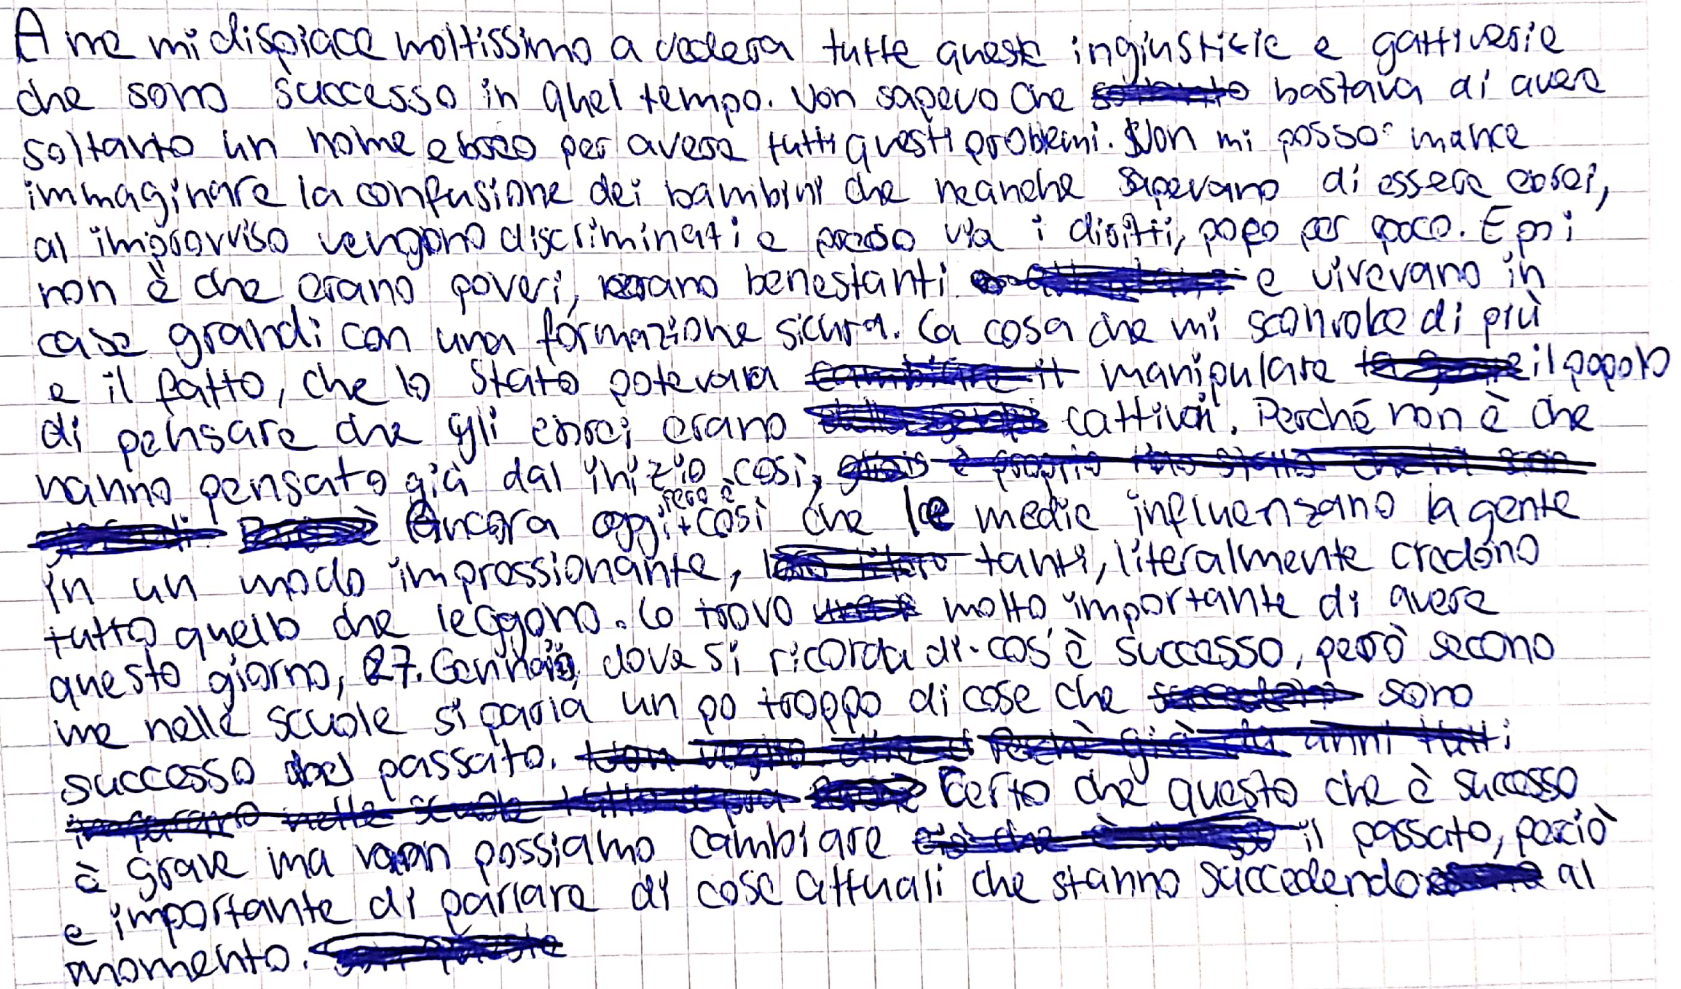 A me mi dispiace moltissimo a vedera tutte queste ingiusticie e gattiverie
che sono successo in quel tempo. Non sapevo che bastava di avere
soltanto un nome ebreo per avere tutti questi problemi. Non mi posso mance
immaginare la confusione dei bambini che neanche sapevano di essere ebrei,
al improvviso vengono discriminati e preso via i diritti, poco per poco. E poi
non è che erano poveri, erano benestanti e vivevano in
case grandi con una formazione sicura. La cosa che mi sconvolge di più
e il fatto, che lo Stato poteva manipulare il popolo
di pensare che gli ebrei erano cattivi. Perché non è che
hanno pensato già dal inizio così,
Ancora oggi però è così che le medie influenzano la gente
in un modo impressionante, tanti, literalmente credono
tutto quello che leggono. Io trovo molto importante di avere
questo giorno, 27. Gennaio, dove si ricorda di cos'è successo, però secono
me nelle scuole si parla un po troppo di cose che sono
successo del passato.
Certo che questo che è successo
è grave ma non possiamo cambiare il passato, perciò
e importante di parlare di cose attuali che stanno succedendo al
momento.